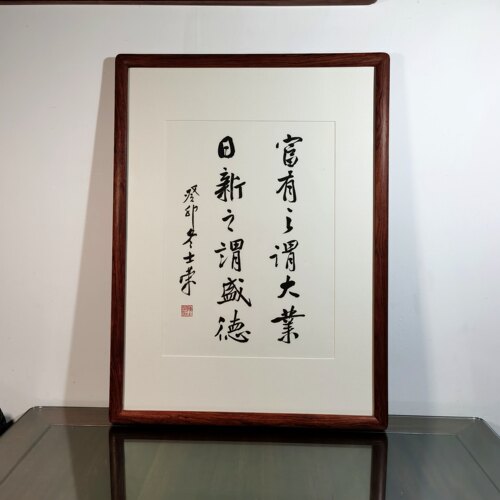 富有之谓大業
日新之謂盛德
癸卯冬士荣